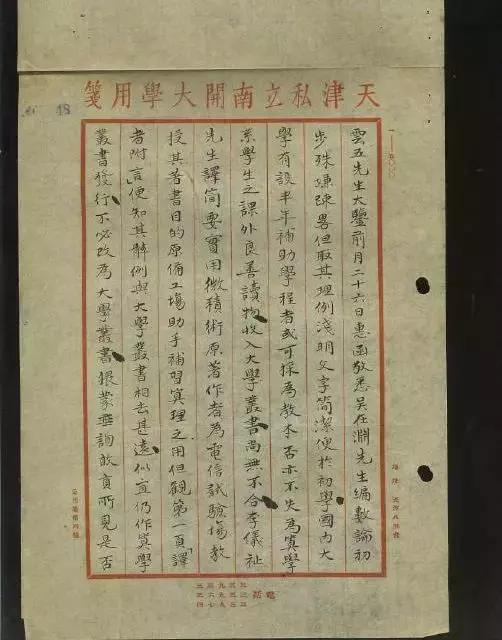 天津私立南開大學用箋
雲五先生大鑒前月二十六日惠函敬悉吳在淵先生編數論初
步殊嫌疎畧但取其理例淺明文字簡潔便於初學國內大
學有設半年補助學程者或可採為教本否亦不失為算學
系學生之課外良善讀物收入大學叢書尚無不合李儀祉
先生譯簡要實用微積術原著作者為電信試驗場教
授其著書目的原備工場助手補習算理之用但觀第一頁「譯
者附言」便知其體例與大學叢書相去甚遠似宜仍作算學
叢書發行不必改為大學叢書猥蒙垂詢敢貢所見是否
電話
48